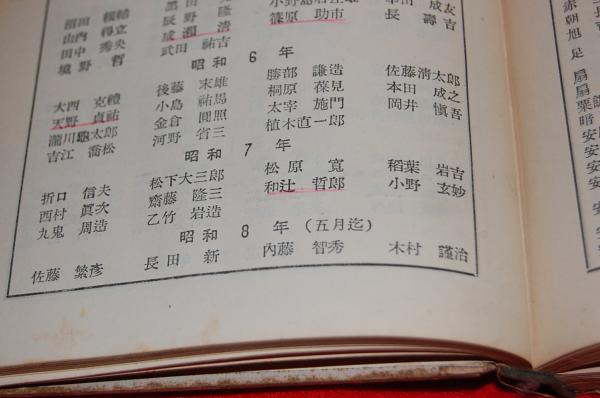 小野島
友
沼田
野
成吉
山西
辰野 隆
長壽
田中 秀央
成瀨 清
境野 哲
武田 祐吉
篠原 助市
昭和 6 年
大西 克禮
後藤 末雄
勝部 謙造
佐藤淸太郎
天野 貞祐
小島 祐馬
桐原 葆見
本田 成之
瀧川龜太郎
金倉 圓照
太宰 施門
岡井 愼吾
吉江 喬松
河野 省三
植木直一郎
昭和 7 年
折口 信夫
松下大三郎
松原 寬
稻葉 岩吉
西村 眞次
齋藤 隆三
和辻 哲郎
小野 玄妙
九鬼 周造
乙竹 岩造
昭和 8 年 (五月迄)
佐藤 繁彥
長田 新
內藤 智秀
木村 謹治
赤
朝
旭
足
扇
扇
粟
暗
安
安
安
安
安